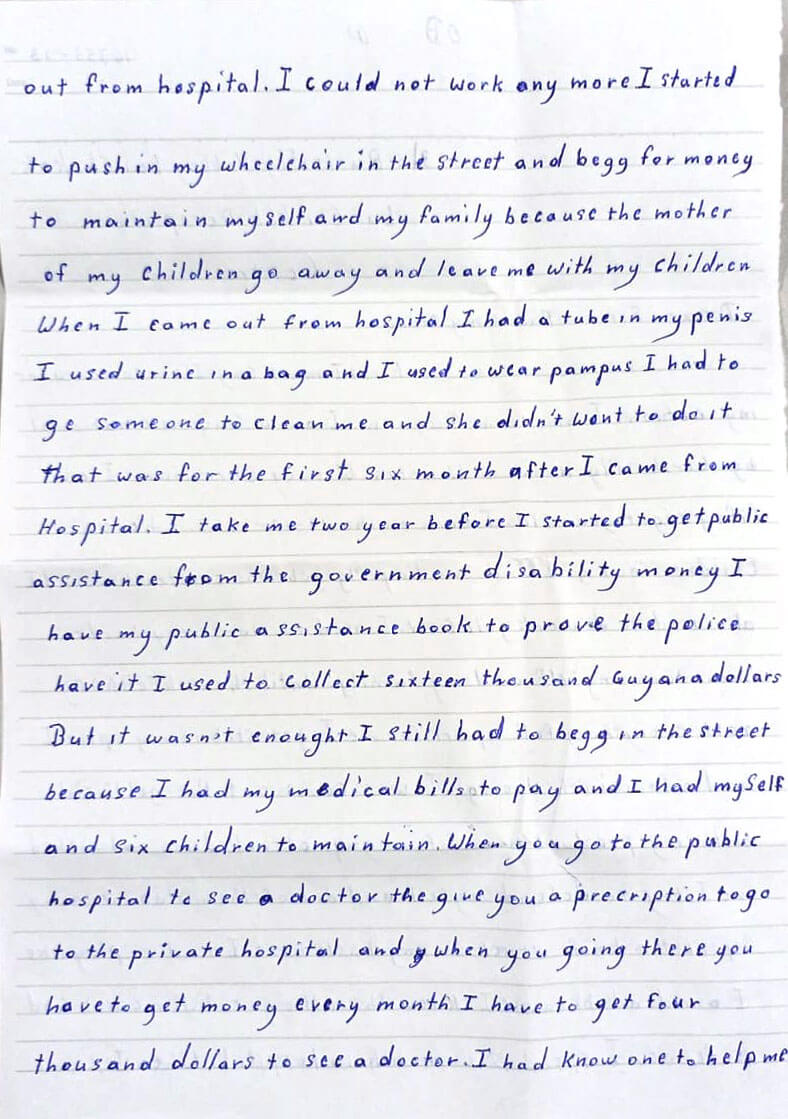 out from hospital. I could not work any more I started
to push in my wheelchair in the street and begg for money
to maintain myself and my family because the mother
of my children go away and leave me with my children
When I came out from hospital I had a tube in my penis
I used urine in a bag and I used to wear pampus I had to
ge someone to clean me and she didn't want to do it
that was for the first six month after I came from
Hospital. I take me two year before I started to get public
assistance from the government disability money I
have my public assistance book to prove the police
have it I used to collect sixteen thousand Guyana dollars
But it wasn't enought I still had to begg in the street
because I had my medical bills to pay and I had myself
and six children to maintain. When you go to the public
hospital to see a doctor the give you a precription to go
to the private hospital and when you going there you
have to get money every month I have to get four
thousand dollars to see a doctor. I had know one to help me